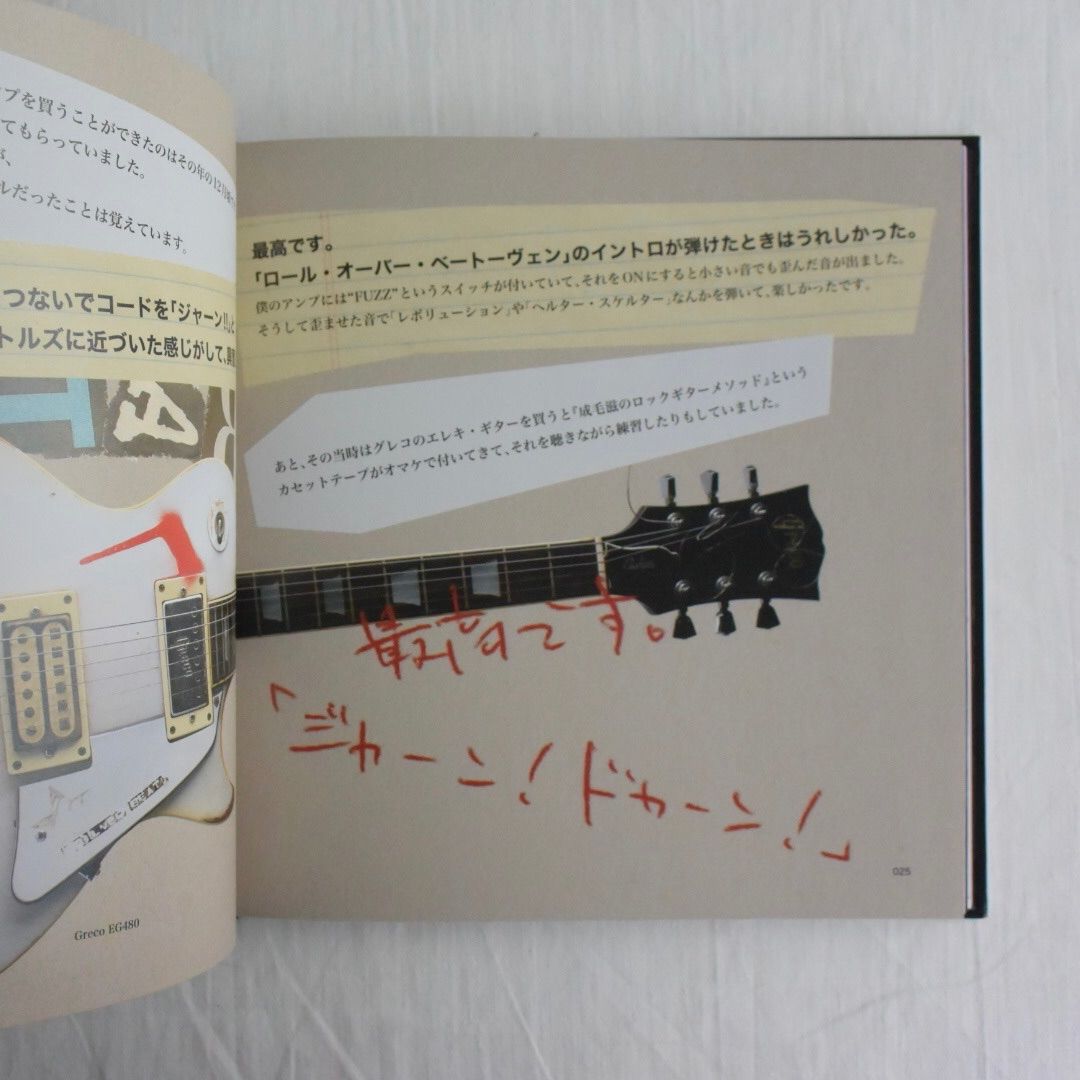 プを買うことができたのはその年の12月
てもらっていました。
が、
ルだったことは覚えています。
つないでコードを「ジャーン!!」と
トルズに近づいた感じがして、
Greco EG480
最高です。
「ロール・オーバー・ベートーヴェン」のイントロが弾けたときはうれしかった。
僕のアンプには“FUZZ”というスイッチが付いていて、それをONにすると小さい音でも歪んだ音が出ました。
そうして歪ませた音で「レボリューション」や「ヘルター・スケルター」なんかを弾いて、楽しかったです。
あと、その当時はグレコのエレキ・ギターを買うと『成毛滋のロックギターメソッド』という
カセットテープがオマケで付いてきて、それを聴きながら練習したりもしていました。
最高です。
「ジャーン!ドゥャーン!」
025